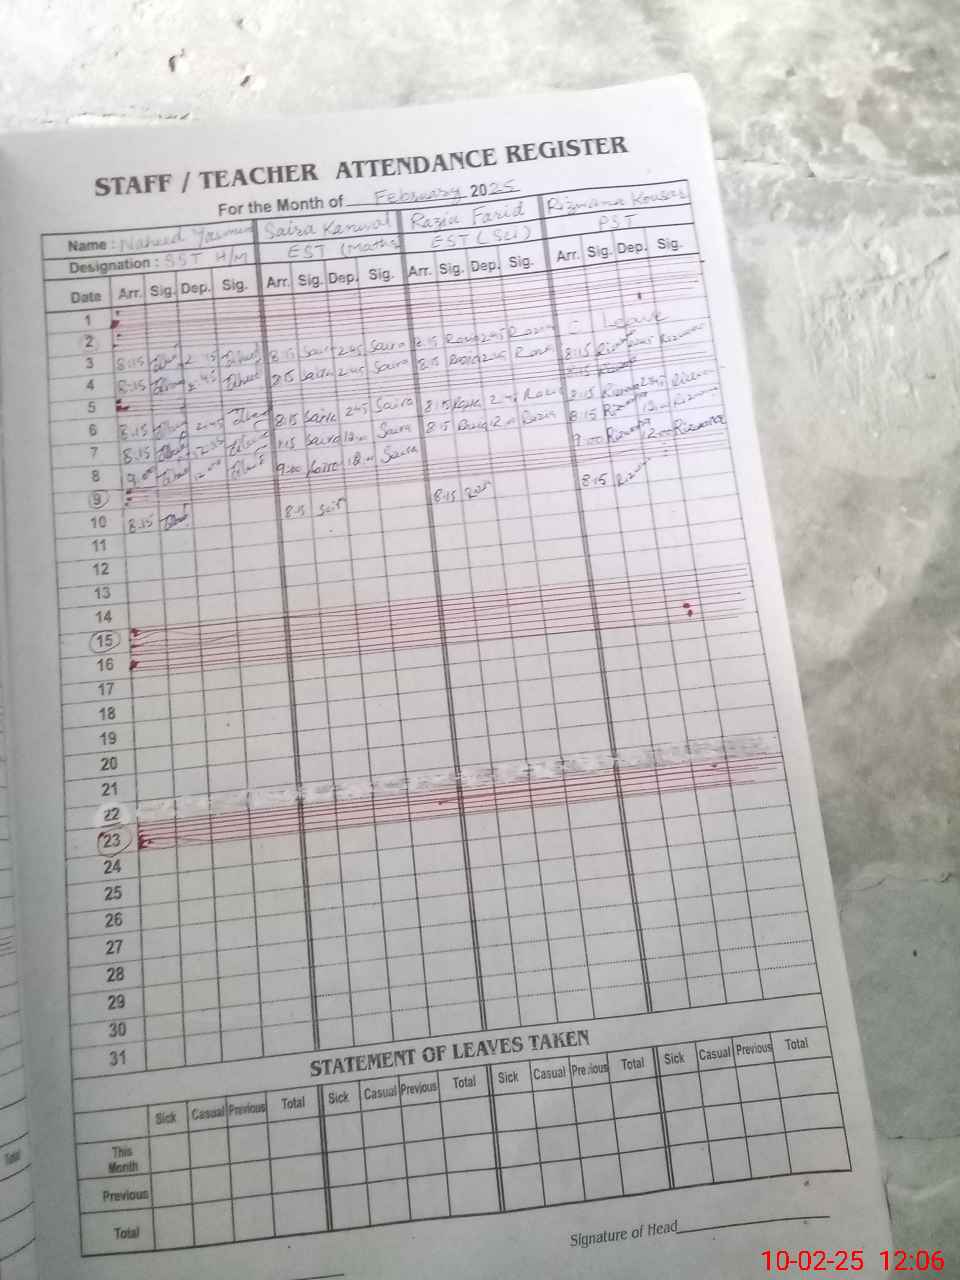 STAFF / TEACHER ATTENDANCE REGISTER
For the Month of February 2025
Name : Naheed Yasmin Saira Kanwal Razia Farid Rizwana Kousar
Designation : SST H/M EST (Maths) EST (Sci) PST
Date Arr. Sig. Dep. Sig. Arr. Sig. Dep. Sig. Arr. Sig. Dep. Sig. Arr. Sig. Dep. Sig.
1
2
3 8:15 8:15 Saira 2:45 Saira 8:15 Razia 2:45 Razia C Leave
4 8:15 2:45 8:15 Saira 2:45 Saira 8:15 Razia 2:45 Razia 8:15 Rizwana 2:45 Rizwana
5
6 8:15 2:45 8:15 Saira 2:45 Saira 8:15 Razia 2:45 Razia 8:15 Rizwana 2:45 Rizwana
7 8:15 Saira 12:00 Saira 8:15 Razia 12:00 Razia 8:15 Rizwana 12:00 Rizwana
8 9:00 12:00 9:00 Saira 12:00 Saira 9:00 Rizwana 12:00 Rizwana
9
10 8:15 8:15 Saira 8:15 8:15
11
12
13
14
15
16
17
18
19
20
21
22
23
24
25
26
27
28
29
30
31
STATEMENT OF LEAVES TAKEN
Sick Casual Previous Total Sick Casual Previous Total Sick Casual Previous Total Sick Casual Previous Total
This
Month
Previous
Total
Signature of Head
10-02-25 12:06